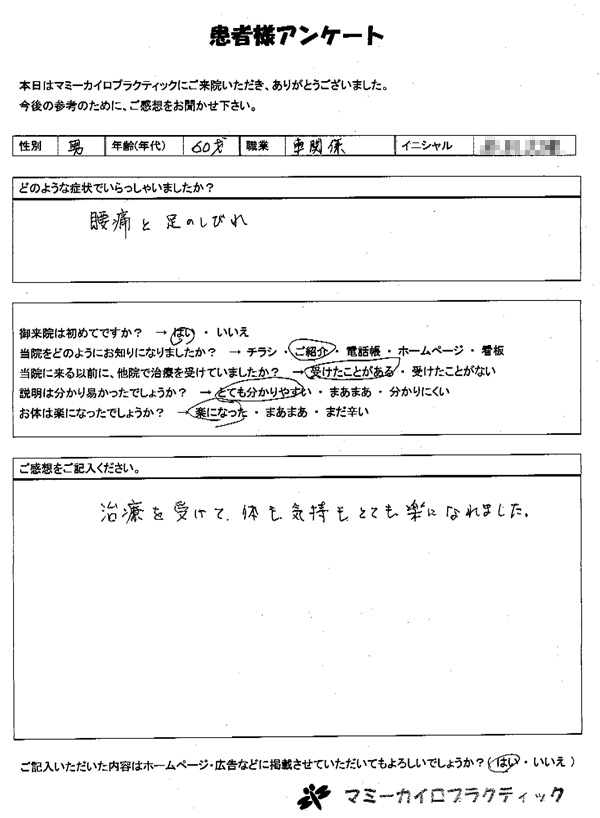 患者様アンケート
本日はマミーカイロプラクティックにご来院いただき、ありがとうございました。
今後の参考のために、ご感想をお聞かせ下さい。
性別 男 年齢(年代) 60才 職業 車関係 イニシャル
どのような症状でいらっしゃいましたか？
腰痛と足のしびれ
御来院は初めてですか？ → はい ・ いいえ
当院をどのようにお知りになりましたか？ → チラシ ・ ご紹介 ・ 電話帳 ・ ホームページ ・ 看板
当院に来る以前に、他院で治療を受けていましたか？ → 受けたことがある ・ 受けたことがない
説明は分かり易かったでしょうか？ → とても分かりやすい ・ まあまあ ・ 分かりにくい
お体は楽になったでしょうか？ → 楽になった ・ まあまあ ・ まだ辛い
ご感想をご記入ください。
治療を受けて、体も気持も、とても楽になれました。
ご記入いただいた内容はホームページ・広告などに掲載させていただいてもよろしいでしょうか？（ はい ・ いいえ ）
マミーカイロプラクティック